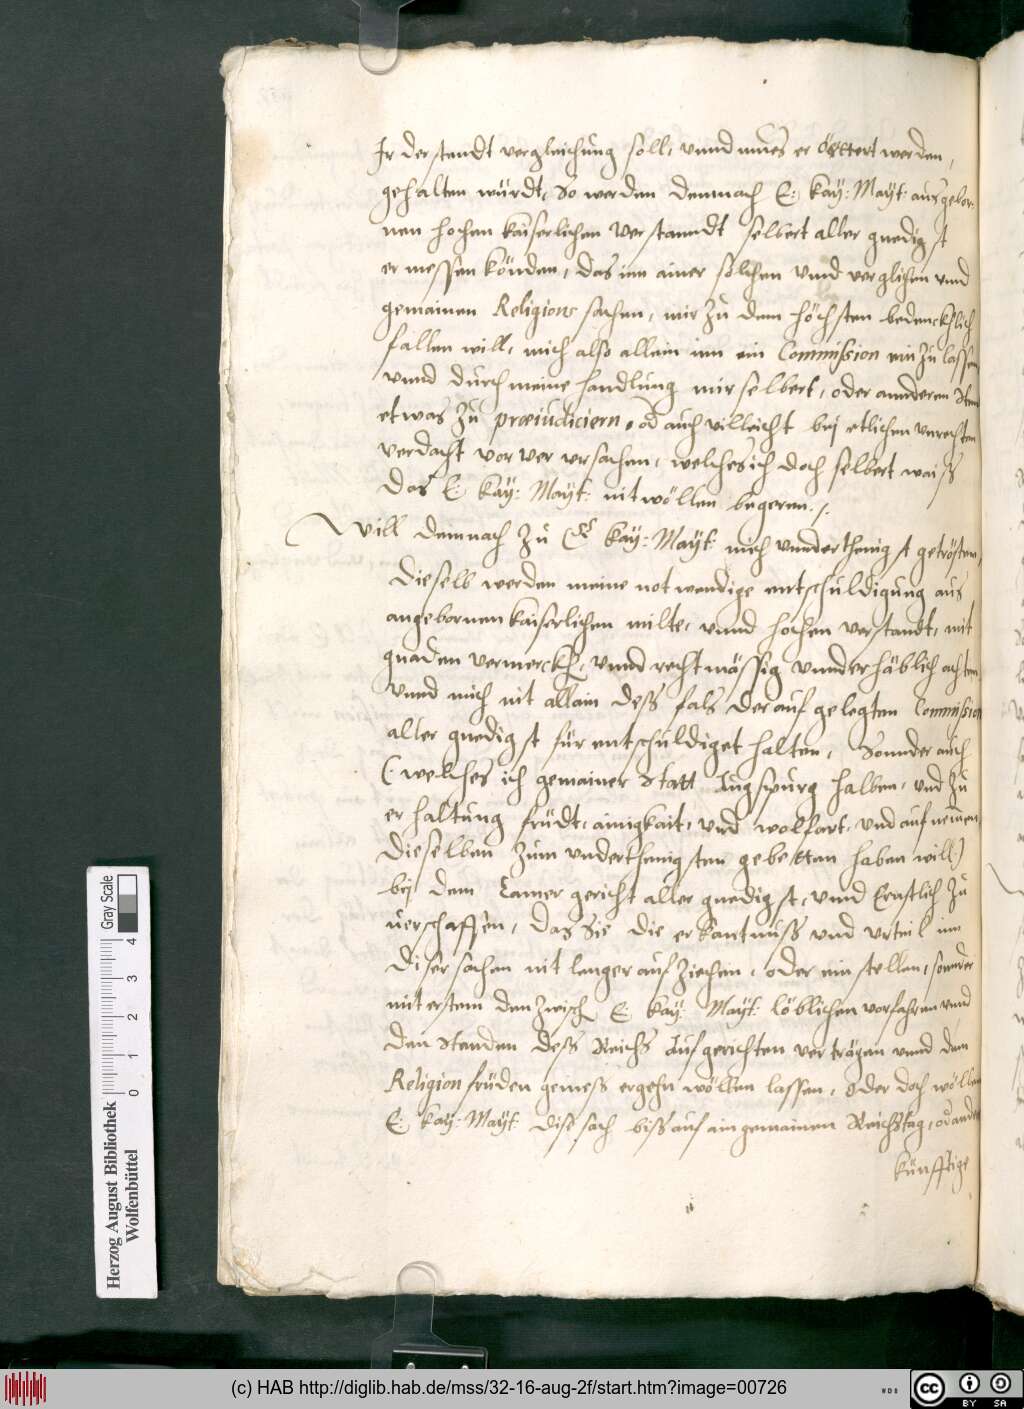 Ir der standt vergleichung soll, vnnd mues er örttert werden,
gehalten würdt, So werden demnach E: kay: Mayt: aus gebor-
nen hochen kaiserlichen Verstanndt selbert aller gnedigst
ermessen könden, das inn ainer solchen vnnd verglichen vnd
gemainen Religions sachen, mir zu dem höchsten bedencklich
fallen will, mich also allain inn ein Commission ein zu lassen
vnnd durch meine handlung mir selbert, oder annderen Sten
etwas zu præiudiciern, od auch villeicht bej etlichen vnrechten
verdacht vor ver vrsachen, welches ich doch selbert waiss
Das E: kay: Mayt: nit wöllen begeren./.
Will demnach zu E kay: Mayt: mich vnnderthenigst getrösten,
dieselb werden meine notwendige entschuldigung aus
angebornen kaiserlichen milte, vnnd hochen verstandt, mit
gnaden vermerckh, vnnd rechtmässig vnnderhäblich achten
vnnd mich nit allain dess fals der auf gelegten Commission
aller gnedigst für entschuldiget halten, Sonnder auch
(welches ich gemainer Statt Augspurg halben, vnd zu
erhaltung fridt, ainigkait, vnd wolfart, vnd aufnemen
dieselben zum vnderthenigsten gebetten haben will)
bej dem Camer gericht aller gnedigst, vnnd Ernstlich zu
verschaffen, das Sie die erkantnuss vnd vrteil inn
diser sachen nit lenger auf ziechen, oder ein stellen, sonnder
mit erstem den zwisch E: kay: Mayt: löblichen vorfahren vnnd
den Stenden dess Reichs aufgerichten verträgen vnnd dem
Religion friden gemess ergehn wöllen lassen, Oder doch wöllen
E: kay: Mayt: dise sach biss auf ain gemainen Reichstag, od ander
künfftige
Herzog August Bibliothek
Wolfenbüttel
0 1 2 3 4
Gray Scale
(c) HAB http://diglib.hab.de/mss/32-16-aug-2f/start.htm?image=00726
WDB
cc BY SA